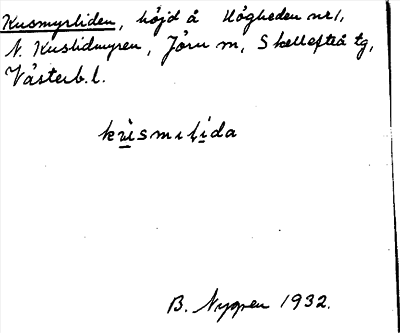 Kusmyrliden, höjd å Högheden nr 1,
N. Kuslidmyren, Jörn sn, Skellefteå tg,
Västerb. l.
B. Nygren 1932.